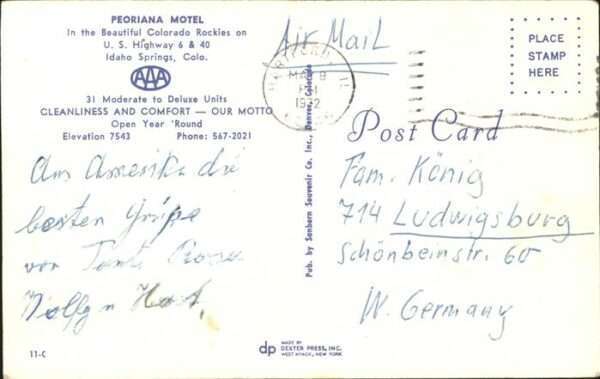 PEORIANA MOTEL
In the Beautiful Colorado Rockies on
U. S. Highway 6 & 40
Idaho Springs, Colo.
AAA
31 Moderate to Deluxe Units
CLEANLINESS AND COMFORT — OUR MOTTO
Open Year 'Round
Elevation 7543 Phone: 567-2021
Aus Amerika die
besten Grüße
von Tante
11-C
Pub. by Sanborn Souvenir Co. Inc., Denver, Colorado
dp MADE BY
DEXTER PRESS, INC.
WEST NYACK, NEW YORK
Air Mail
PLACE
STAMP
HERE
Post Card
Fam. König
714 Ludwigsburg
Schönbeinstr. 60
W. Germany